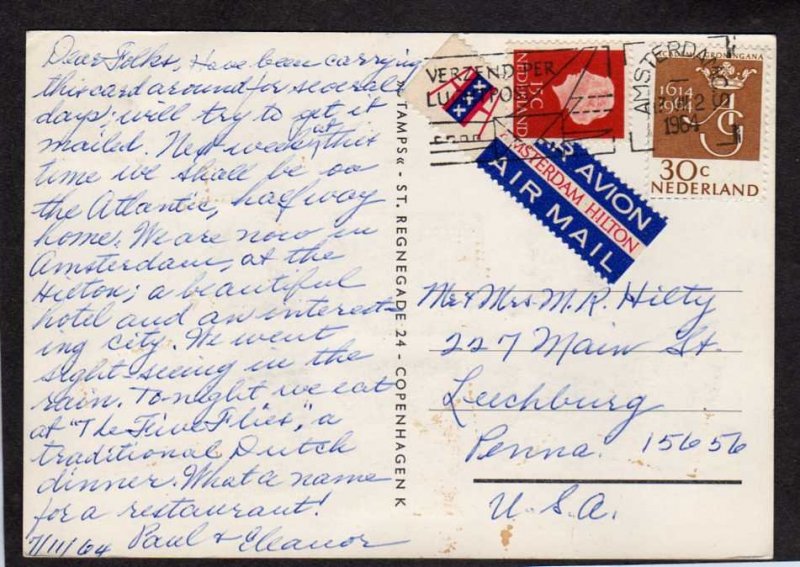 Dear Folks, Have been carrying
this card around for several
days; will try to get it
mailed. Next week at this
time we shall be on
the Atlantic, halfway
home. We are now in
Amsterdam, at the
Hilton; a beautiful
hotel and an interest-
ing city. We went
sight-seeing in the
rain. Tonight we eat
at "The Five Flies", a
traditional Dutch
dinner. What a name
for a restaurant!
7/11/64 Paul & Eleanor
STAMPS« - ST. REGNEGADE 24 - COPENHAGEN K
VERZEND PER
LUCHTPOST
15c
NEDERLAND
AMSTERDAM
1964
1614
1964
30c
NEDERLAND
PAR AVION
AMSTERDAM HILTON
AIR MAIL
Mr & Mrs. M. R. Hilty
227 Main St.
Leechburg
Penna. 15656
U.S.A.